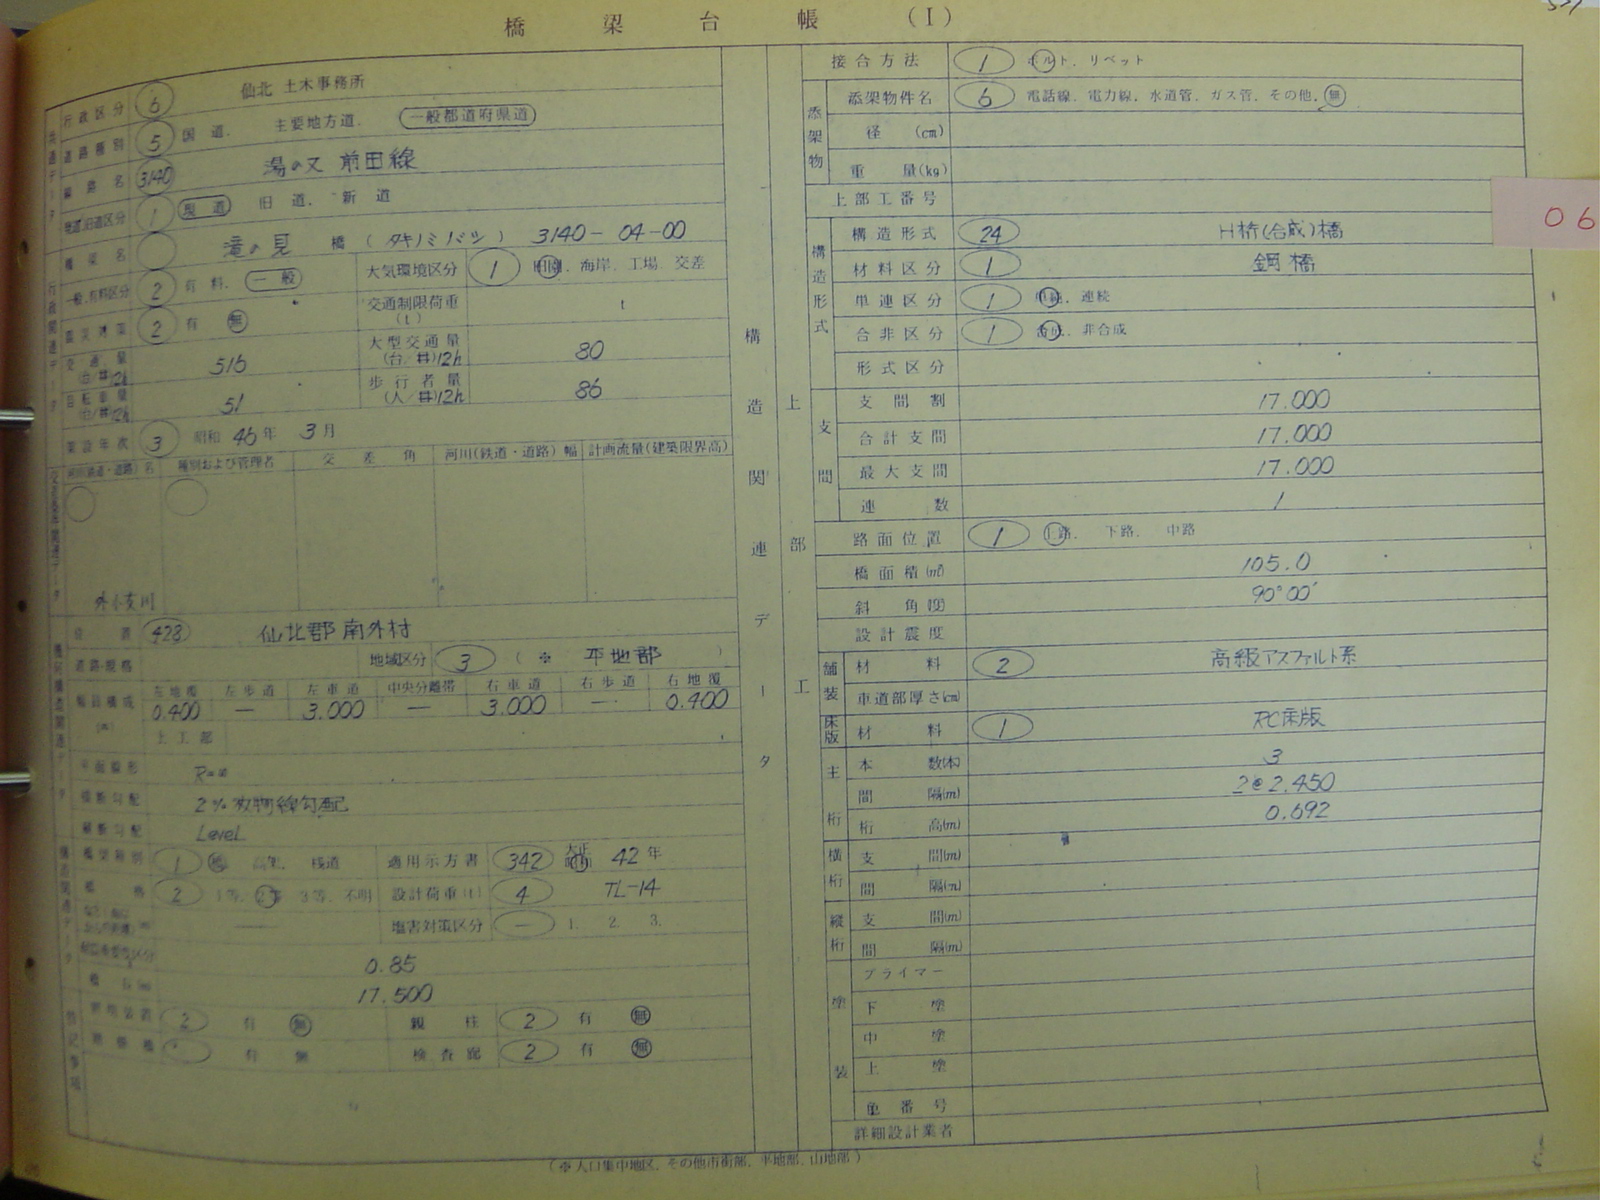 橋梁台帳 (I)
行政区分 6 仙北 土木事務所
道路種別 5 国道. 主要地方道. 一般都道府県道
路線名 3140 湯の又 前田線
現道旧道区分 1 現道 旧道. 新道
橋梁名 滝の見 橋 (タキノミバシ) 3140-04-00
一般.有料区分 2 有料. 一般 大気環境区分 1 田園. 海岸. 工場. 交差
2 有 無 交通制限荷重(t) t
交通量(台/12h) 516 大型交通量(台/12h) 80
自転車量(台/12h) 51 歩行者量(人/12h) 86
架設年次 3 昭和 46年 3月
河川(鉄道・道路)名 種別および管理者 交差角 河川(鉄道・道路)幅 計画流量(建築限界高)
外小友川
位置 428 仙北郡 南外村
道路規格 地域区分 3 (※ 平地部)
幅員構成(m) 左地覆 左歩道 左車道 中央分離帯 右車道 右歩道 右地覆
0.400 — 3.000 — 3.000 — 0.400
上工部
平面線形 R=∞
横断勾配 2% 放物線勾配
縦断勾配 Level
橋梁種別 1 橋 高架. 桟道 適用示方書 342 大正 昭和 42年
橋格 2 1等. 2等 3等. 不明 設計荷重(t) 4 TL-14
塩害対策区分 — 1. 2. 3.
0.85
橋長(m) 17.500
2 有 無 親柱 2 有 無
有 無 検査廊 2 有 無
特記事項
構造関連データ
上部工
接合方法 1 ボルト. リベット
添架物
添架物件名 6 電話線. 電力線. 水道管. ガス管. その他. 無
径 (cm)
重量(kg)
上部工番号
06
構造形式
構造形式 24 H桁(合成)橋
材料区分 1 鋼橋
単連区分 1 単純. 連続
合非区分 1 合成. 非合成
形式区分
支間
支間割 17.000
合計支間 17.000
最大支間 17.000
連数 1
路面位置 1 上路. 下路. 中路
橋面積(㎡) 105.0
斜角(度) 90°00′
設計震度
舗装
材料 2 高級アスファルト系
車道部厚さ(cm)
床版 材料 1 RC床版
主桁
本数(本) 3
間隔(m) 2@2.450
桁高(m) 0.692
横桁
支間(m)
間隔(m)
縦桁
支間(m)
間隔(m)
塗装
プライマー
下塗
中塗
上塗
色番号
詳細設計業者
(※ 人口集中地区. その他市街部. 平地部. 山地部)